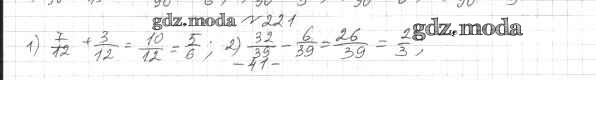 gdz.moda №221
1) 7/12 + 3/12 = 10/12 = 5/6; 2) 32/39 - 6/39 = 26/39 = 2/3; gdz.moda
- 41 -